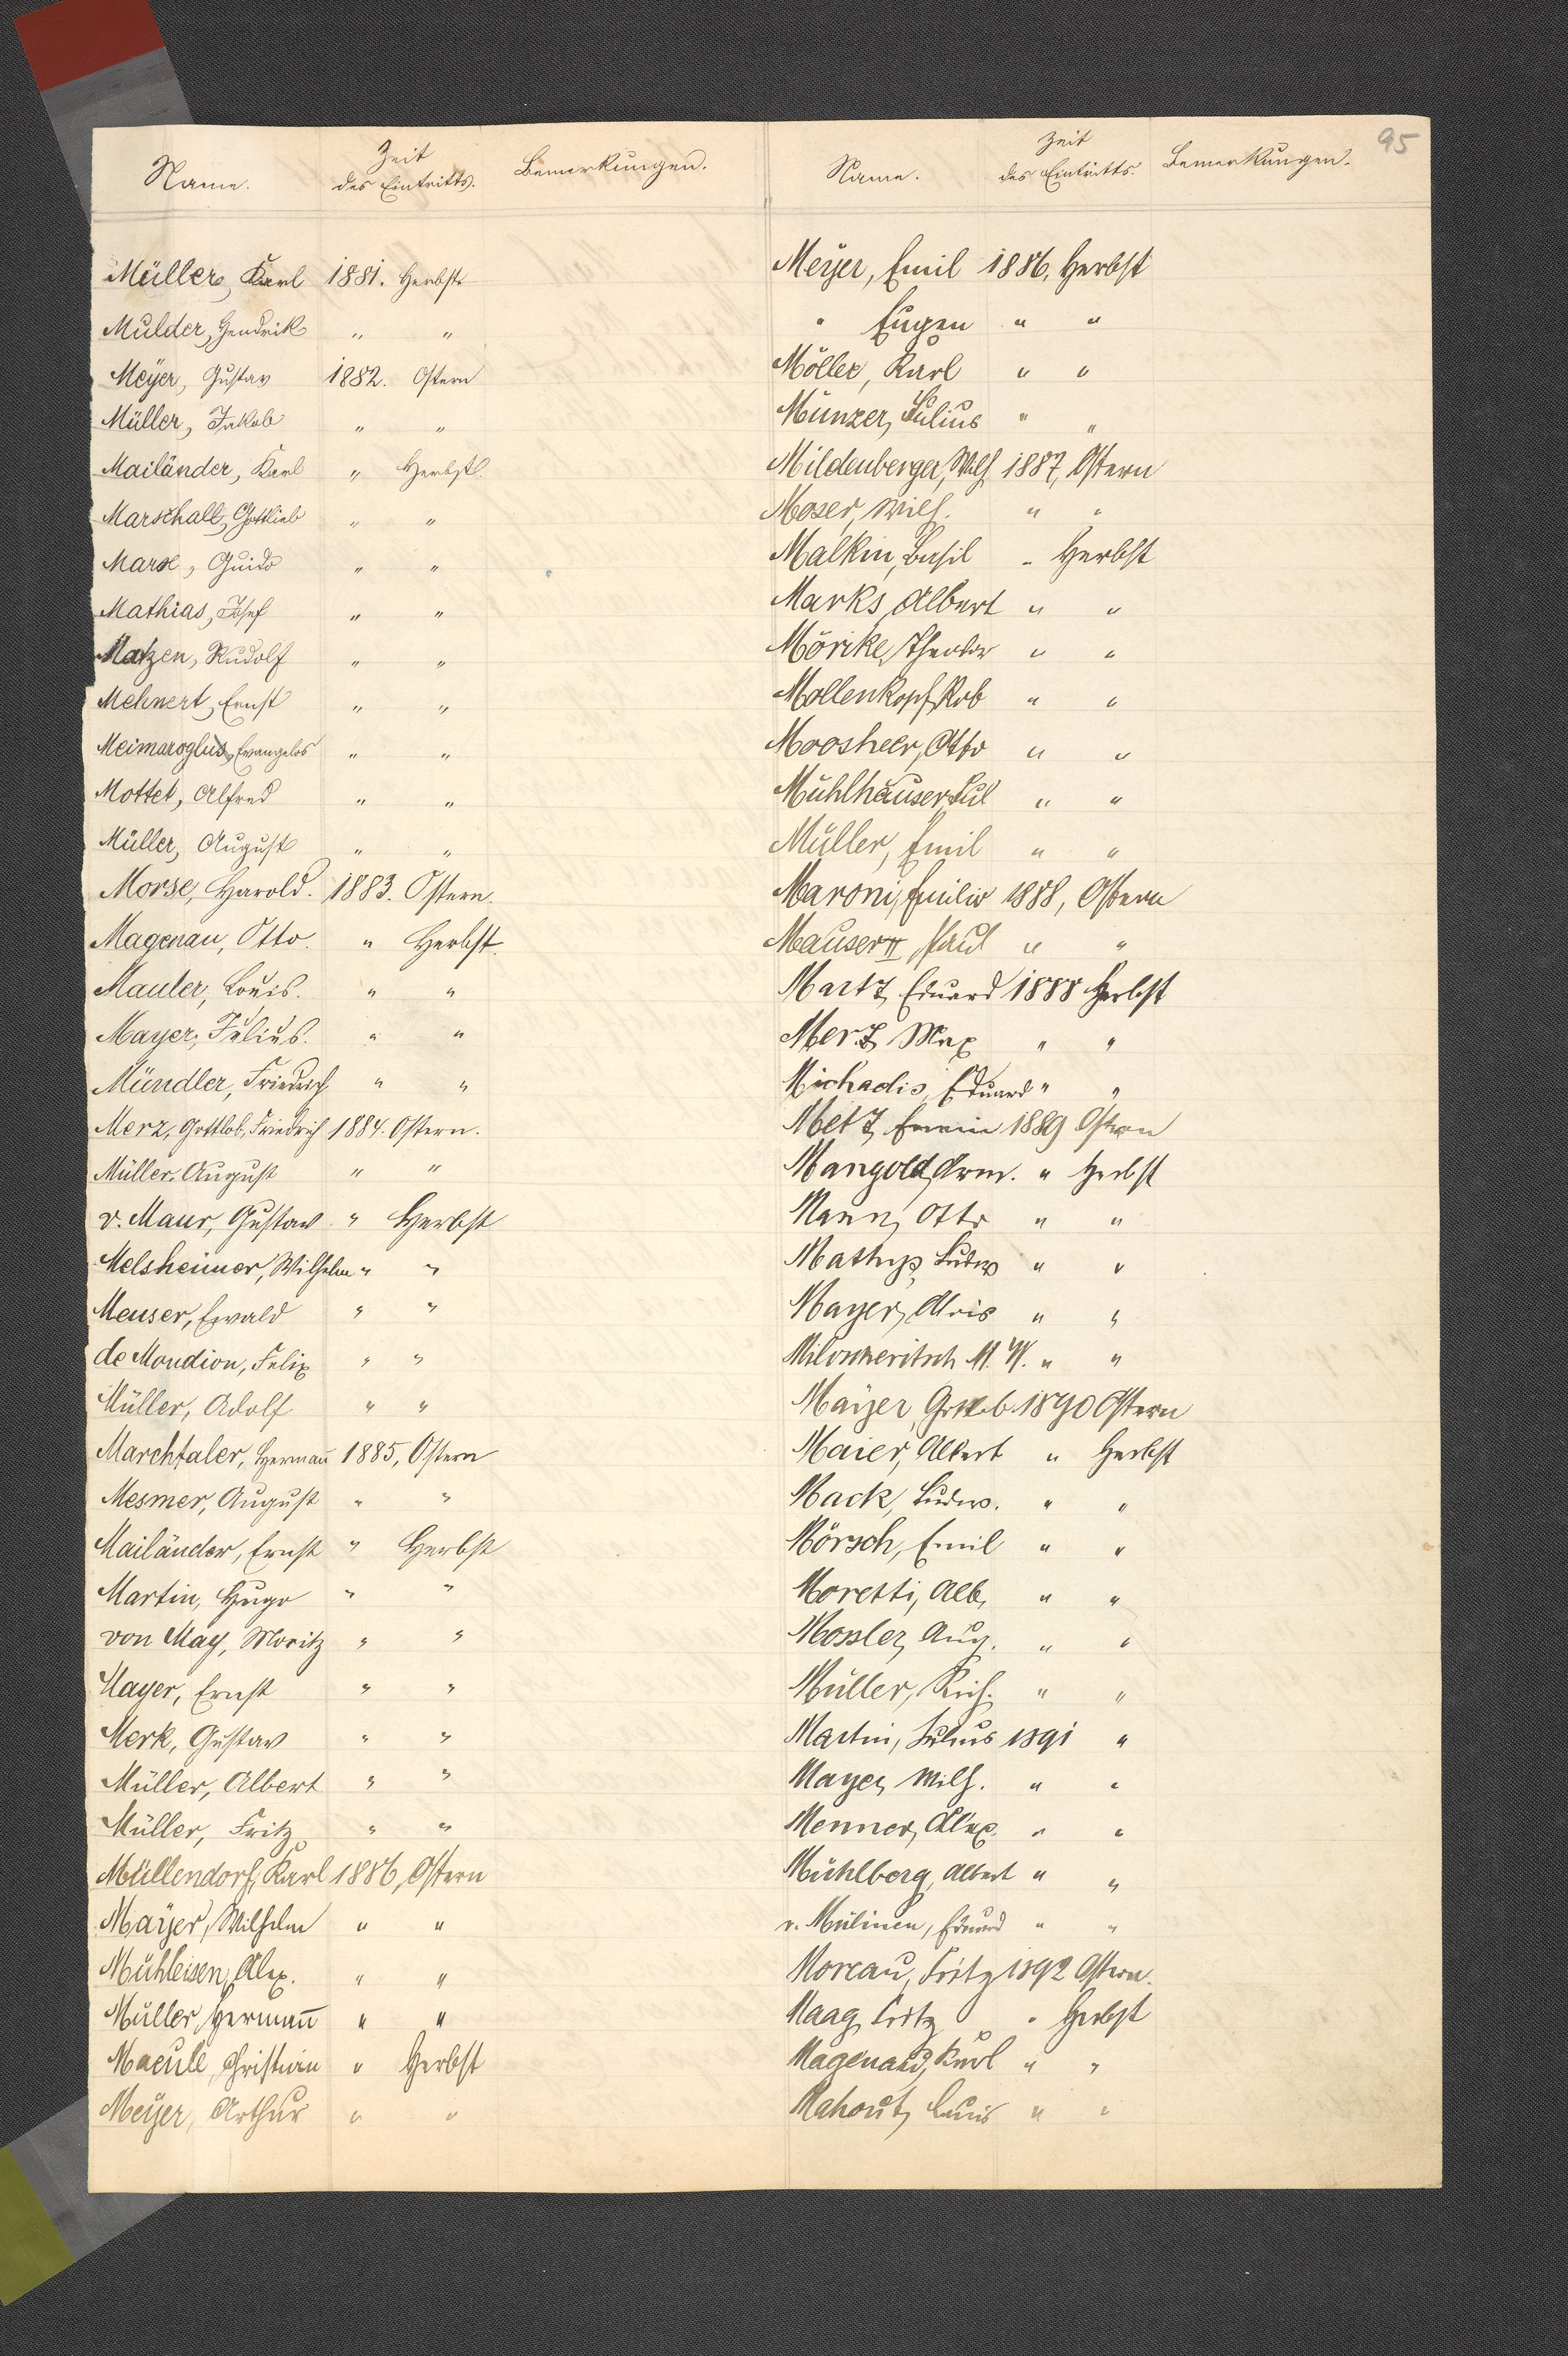 95
Name. Zeit des Eintritts. Bemerkungen.
Müller, Karl 1881. Herbst
Mulder, Hendrik " "
Meÿer, Gustav 1882. Ostern
Müller, Jakob " "
Mailänder, Karl " Herbst.
Marschall, Gottlieb " "
Marx, Guido " "
Mathias, Josef " "
Matzen, Rudolf " "
Mehnert, Ernst " "
Meimaroglus, Evangelos " "
Mottet, Alfred " "
Müller, August " "
Morse, Harold. 1883. Ostern.
Magenau, Otto. " Herbst.
Mauler, Louis. " "
Mayer, Julius. " "
Mündler, Friedrich " "
Merz, Gottlob, Friedrich 1884. Ostern.
Müller, August " "
v. Maur, Gustav " Herbst
Melsheimer, Wilhelm " "
Meuser, Ewald " "
de Mondion, Felix " "
Müller, Adolf " "
Marchtaler, Hermañ 1885, Ostern
Mesmer, August " "
Mailänder, Ernst " Herbst
Martin, Hugo " "
von May, Moritz " "
Mayer, Ernst " "
Merk, Gustav " "
Müller, Albert " "
Müller, Fritz " "
Müllendorf, Karl 1886, Ostern
Maÿer, Wilhelm " "
Mühleisen, Alex. " "
Müller, Hermañ " "
Maeule, Christian " Herbst
Meÿer, Arthur " "
Name. Zeit des Eintritts. Bemerkungen.
Meÿer, Emil 1886, Herbst
" Eugen " "
Möller, Karl " "
Münzer, Julius " "
Mildenberger, Wilh 1887, Ostern
Moser, Wilh. " "
Malkin, Basil " Herbst
Marks, Albert " "
Mörike, Theodor " "
Mollenkopf, Rob " "
Moosheer, Otto " "
Mühlhäuser, Jul " "
Müller, Emil " "
Maroni, Emilio 1888, Ostern
Mauser II, Paul " "
Martz, Eduard 1888 Herbst
Merz, Max " "
Michaelis, Eduard " "
Metz, Erwin 1889 Ostern
Mangold, Arm. " Herbst
Mann, Otto " "
Mathys, Ludw " "
Mayer, Alois " "
M. " "
Maÿer 1890 Ostern
Maier, Albert " Herbst
Mack, Ludw. " "
Mörsch, Emil " "
Moretti, Alb. " "
Mossler, Aug. " "
Müller, Rich. " "
Martin, Julius 1891 "
Mayer, Wilh. " "
Menner, Alex. " "
Mühlberg, Albert " "
v. Mülinen, Eduard " "
Moreau, Fritz 1892 Ostern.
Maag, Fritz " Herbst
Magenau, Karl " "
Mahout, Louis " "